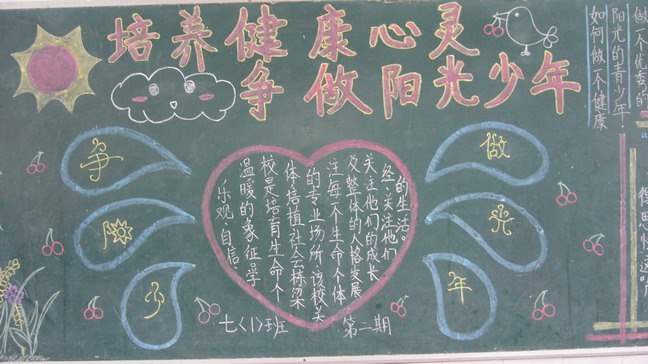 培养健康心灵
争做阳光少年
争
做
阳
光
少
年
乐观 自信
温暖的象征学
校是培育生命个
体 培植社会栋梁
的专业场所 该校关
注每个生命个体
及整体的人格发展
关注他们的成长
经,关注他们
的生活。
七〈1〉班 第一期
如何做一个健康
阳光的青少年
做一个优秀的